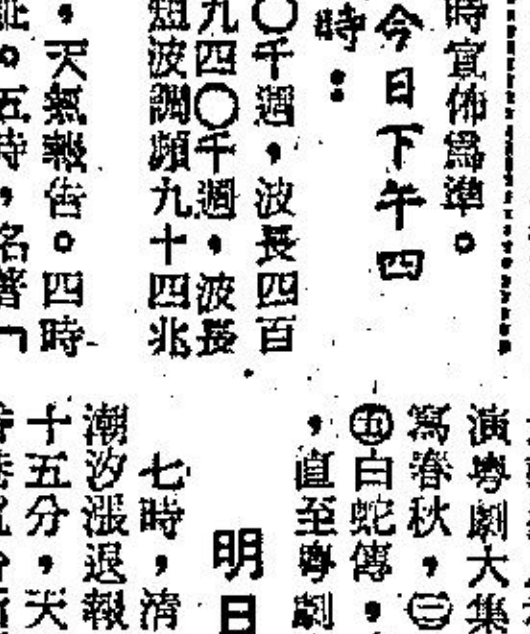 時宣佈為準。
今日下午四
時：
〇千週，波長四百
九四〇千週，波長
短波調頻九十四兆
，天氣報告。四時
。五時，名著「
演粵劇大集
寫春秋，㊂
㊄白蛇傳，
，直至粵劇
明日
七時，清
潮汐漲退報
十五分，天